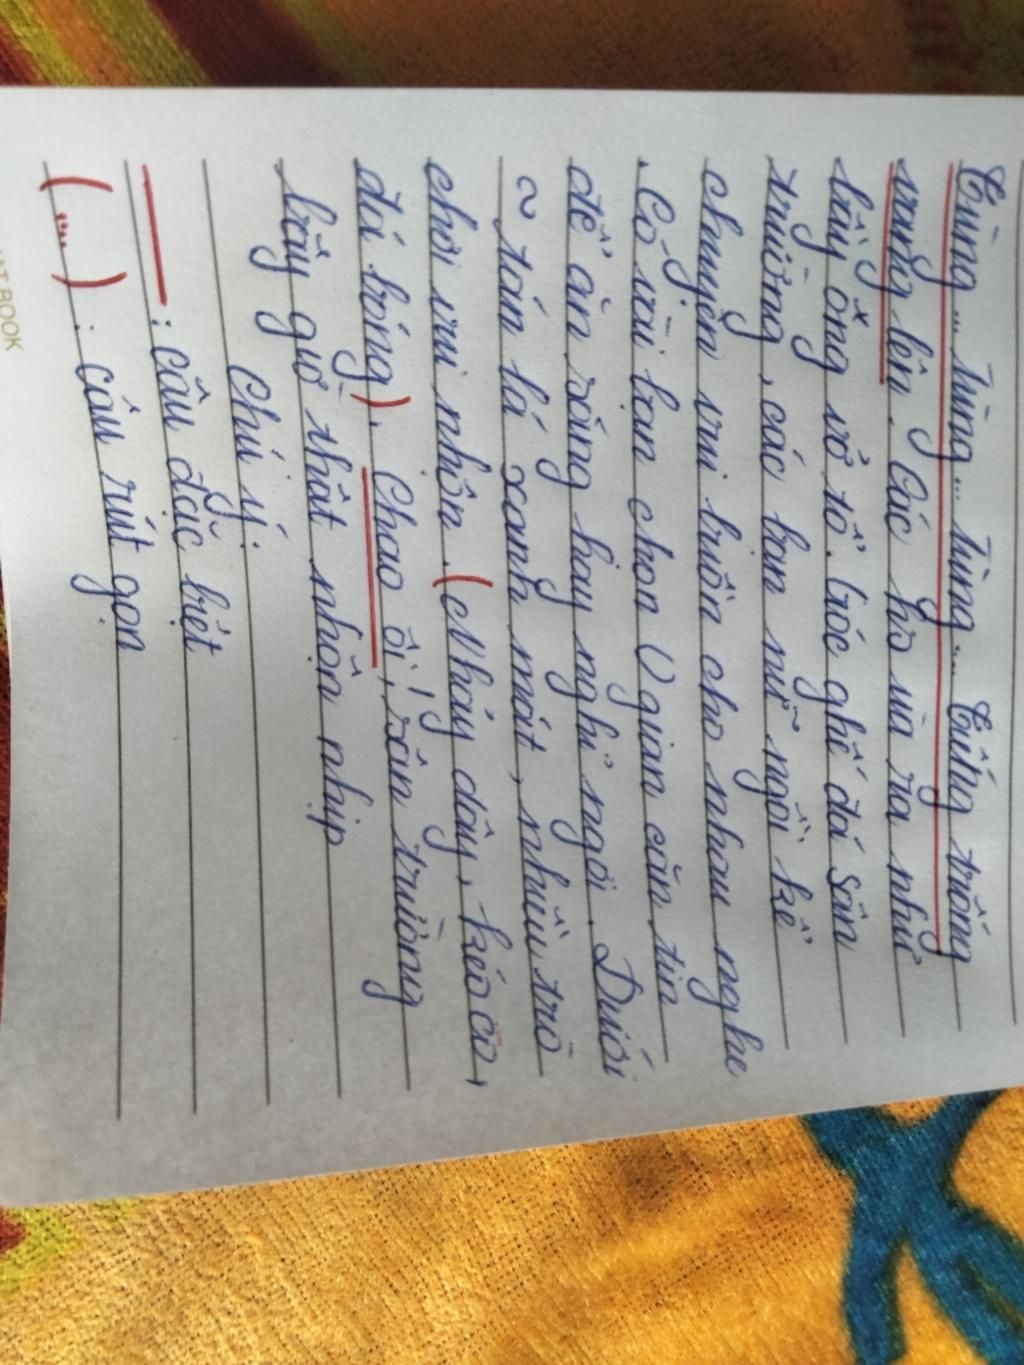 Tùng... tùng... tùng.... Tiếng trống
vang lên. Các hs ùa ra như
bầy ong vỡ tổ. Góc ghế đá sân
trường, các bạn nữ ngồi kể
chuyện vui buồn cho nhau nghe
. Có vài bạn chọn () gian căn tin
để ăn sáng hay nghỉ ngơi. Dưới
~ tán lá xanh mát, nhiều trò
chơi vui nhộn. (Nhảy dây, kéo co,
đá bóng). Chao ôi! sân trường
bây giờ thật nhộn nhịp
Chú ý:
: câu đặc biệt
(...) : câu rút gọn